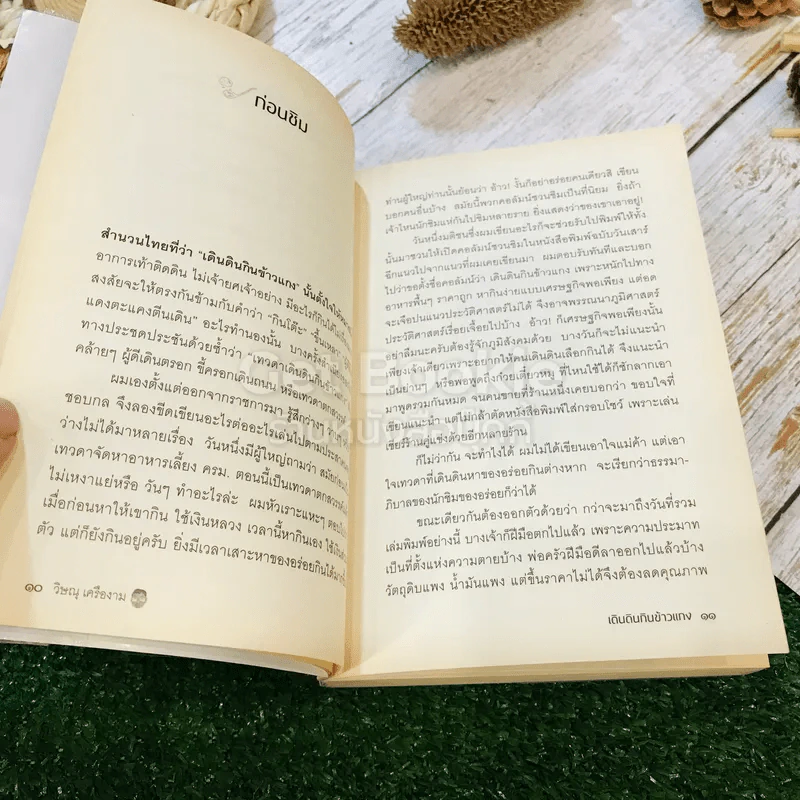 ก่อนชิม
สำนวนไทยที่ว่า "เดินดินกินข้าวแกง" นั้นตั้งใจให้
อาการเท้าติดดิน ไม่เจ้ายศเจ้าอย่าง มีอะไรก็กินได้
สงสัยจะให้ตรงกันข้ามกับคำว่า "กินโต๊ะ"
แดงตะแคงตีนเดิน" อะไรทำนองนั้น บางครั้ง
ทางประชดประชันด้วยซ้ำว่า เทวดาเดินดินกินข้าว
คล้ายๆ ผู้ดีเดินตรอก ขี้ครอกเดินถนน หรือเทวดาตก
ผมเองตั้งแต่ออกจากราชการมา รู้สึก
ชอบกล จึงลองขีดเขียนอะไรต่ออะไรเล่นไปตามประสา
ว่างไม่ได้มาหลายเรื่อง วันหนึ่งมีผู้ใหญ่ถามว่า สมัยก่อน
เทวดาจัดหาอาหารเลี้ยง ครม. ตอนนี้เป็นเทวดาตกสวรรค์
ไม่เหงาแย่หรือ วันๆ ทำอะไรล่ะ ผมหัวเราะแหะๆ ตอบ
เมื่อก่อนหาให้เขากิน ใช้เงินหลวง เวลานี้หากินเอง ใช้เงิน
ตัว แต่ก็ยังกินอยู่ครับ ยิ่งมีเวลาเสาะหาของอร่อยกินได้มาก
๑๐ วิษณุ เครืองาม
ท่านผู้ใหญ่ท่านนั้นย้อนว่า อ้าว! งั้นก็อย่าอร่อยคนเดียวสิ เขียน
บอกคนอื่นบ้าง สมัยนี้พวกคอลัมน์ชวนชิมเป็นที่นิยม ยิ่งถ้า
เจ้าไหนนักชิมแห่กันไปชิมหลายราย ยิ่งแสดงว่าของเขาเอาอยู่!
วันหนึ่งมติชนซึ่งผมเขียนอะไรก็จะช่วยรับไปพิมพ์ให้ทั้ง
นั้นมาชวนให้เปิดคอลัมน์ชวนชิมในหนังสือพิมพ์ฉบับวันเสาร์
อีกแนวไปจากแนวที่ผมเคยเขียนมา ผมตอบรับทันทีและบอก
ไปว่าขอตั้งชื่อคอลัมน์ว่า เดินดินกินข้าวแกง เพราะหนักไปทาง
อาหารพื้นๆ ราคาถูก หากินง่ายแบบเศรษฐกิจพอเพียง แต่อด
จะเจือปนแนวประวัติศาสตร์ไม่ได้ จึงอาจพรรณนาภูมิศาสตร์
ประวัติศาสตร์เรื่อยเจื้อยไปบ้าง อ้าว! ก็เศรษฐกิจพอเพียงนั้น
อย่าลืมนะครับต้องรู้จักภูมิสังคมด้วย บางวันก็จะไม่แนะนำ
เพียงเจ้าเดียวเพราะอยากให้คนเดินดินเลือกกินได้ จึงแนะนำ
เป็นย่านๆ หรือพอพูดถึงก๋วยเตี๋ยวหมู ที่ไหนใช้ได้ก็ชักลากเอา
มาพูดรวมกันหมด จนคนขายที่ร้านหนึ่งเคยบอกว่า ขอบใจที่
เขียนแนะนำ แต่ไม่กล้าตัดหนังสือพิมพ์ใส่กรอบโชว์ เพราะเล่น
เชียร์ร้านคู่แข่งด้วยอีกหลายร้าน
ก็ไม่ว่ากัน จะทำไงได้ ผมไม่ได้เขียนเอาใจแม่ค้า แต่เอา
ใจเทวดาที่เดินดินหาของอร่อยกินต่างหาก จะเรียกว่าธรรมา-
ภิบาลของนักชิมของอร่อยก็ว่าได้
ขณะเดียวกันต้องออกตัวด้วยว่า กว่าจะมาถึงวันที่รวม
เล่มพิมพ์อย่างนี้ บางเจ้าก็ฝีมือตกไปแล้ว เพราะความประมาท
เป็นที่ตั้งแห่งความตายบ้าง พ่อครัวฝีมือดีลาออกไปแล้วบ้าง
วัตถุดิบแพง น้ำมันแพง แต่ขึ้นราคาไม่ได้จึงต้องลดคุณภาพ
เดินดินกินข้าวแกง ๑๑